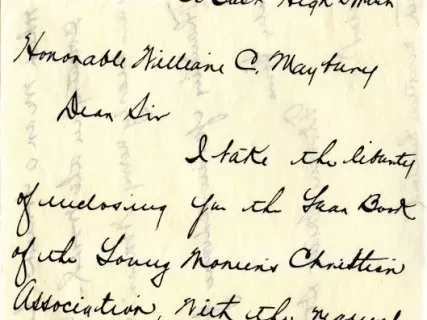 East High
Honorable William C. Maybury
Dear Sir
I take the liberty
of enclosing you the Year Book
of the Young Women's Christian
Association, With the